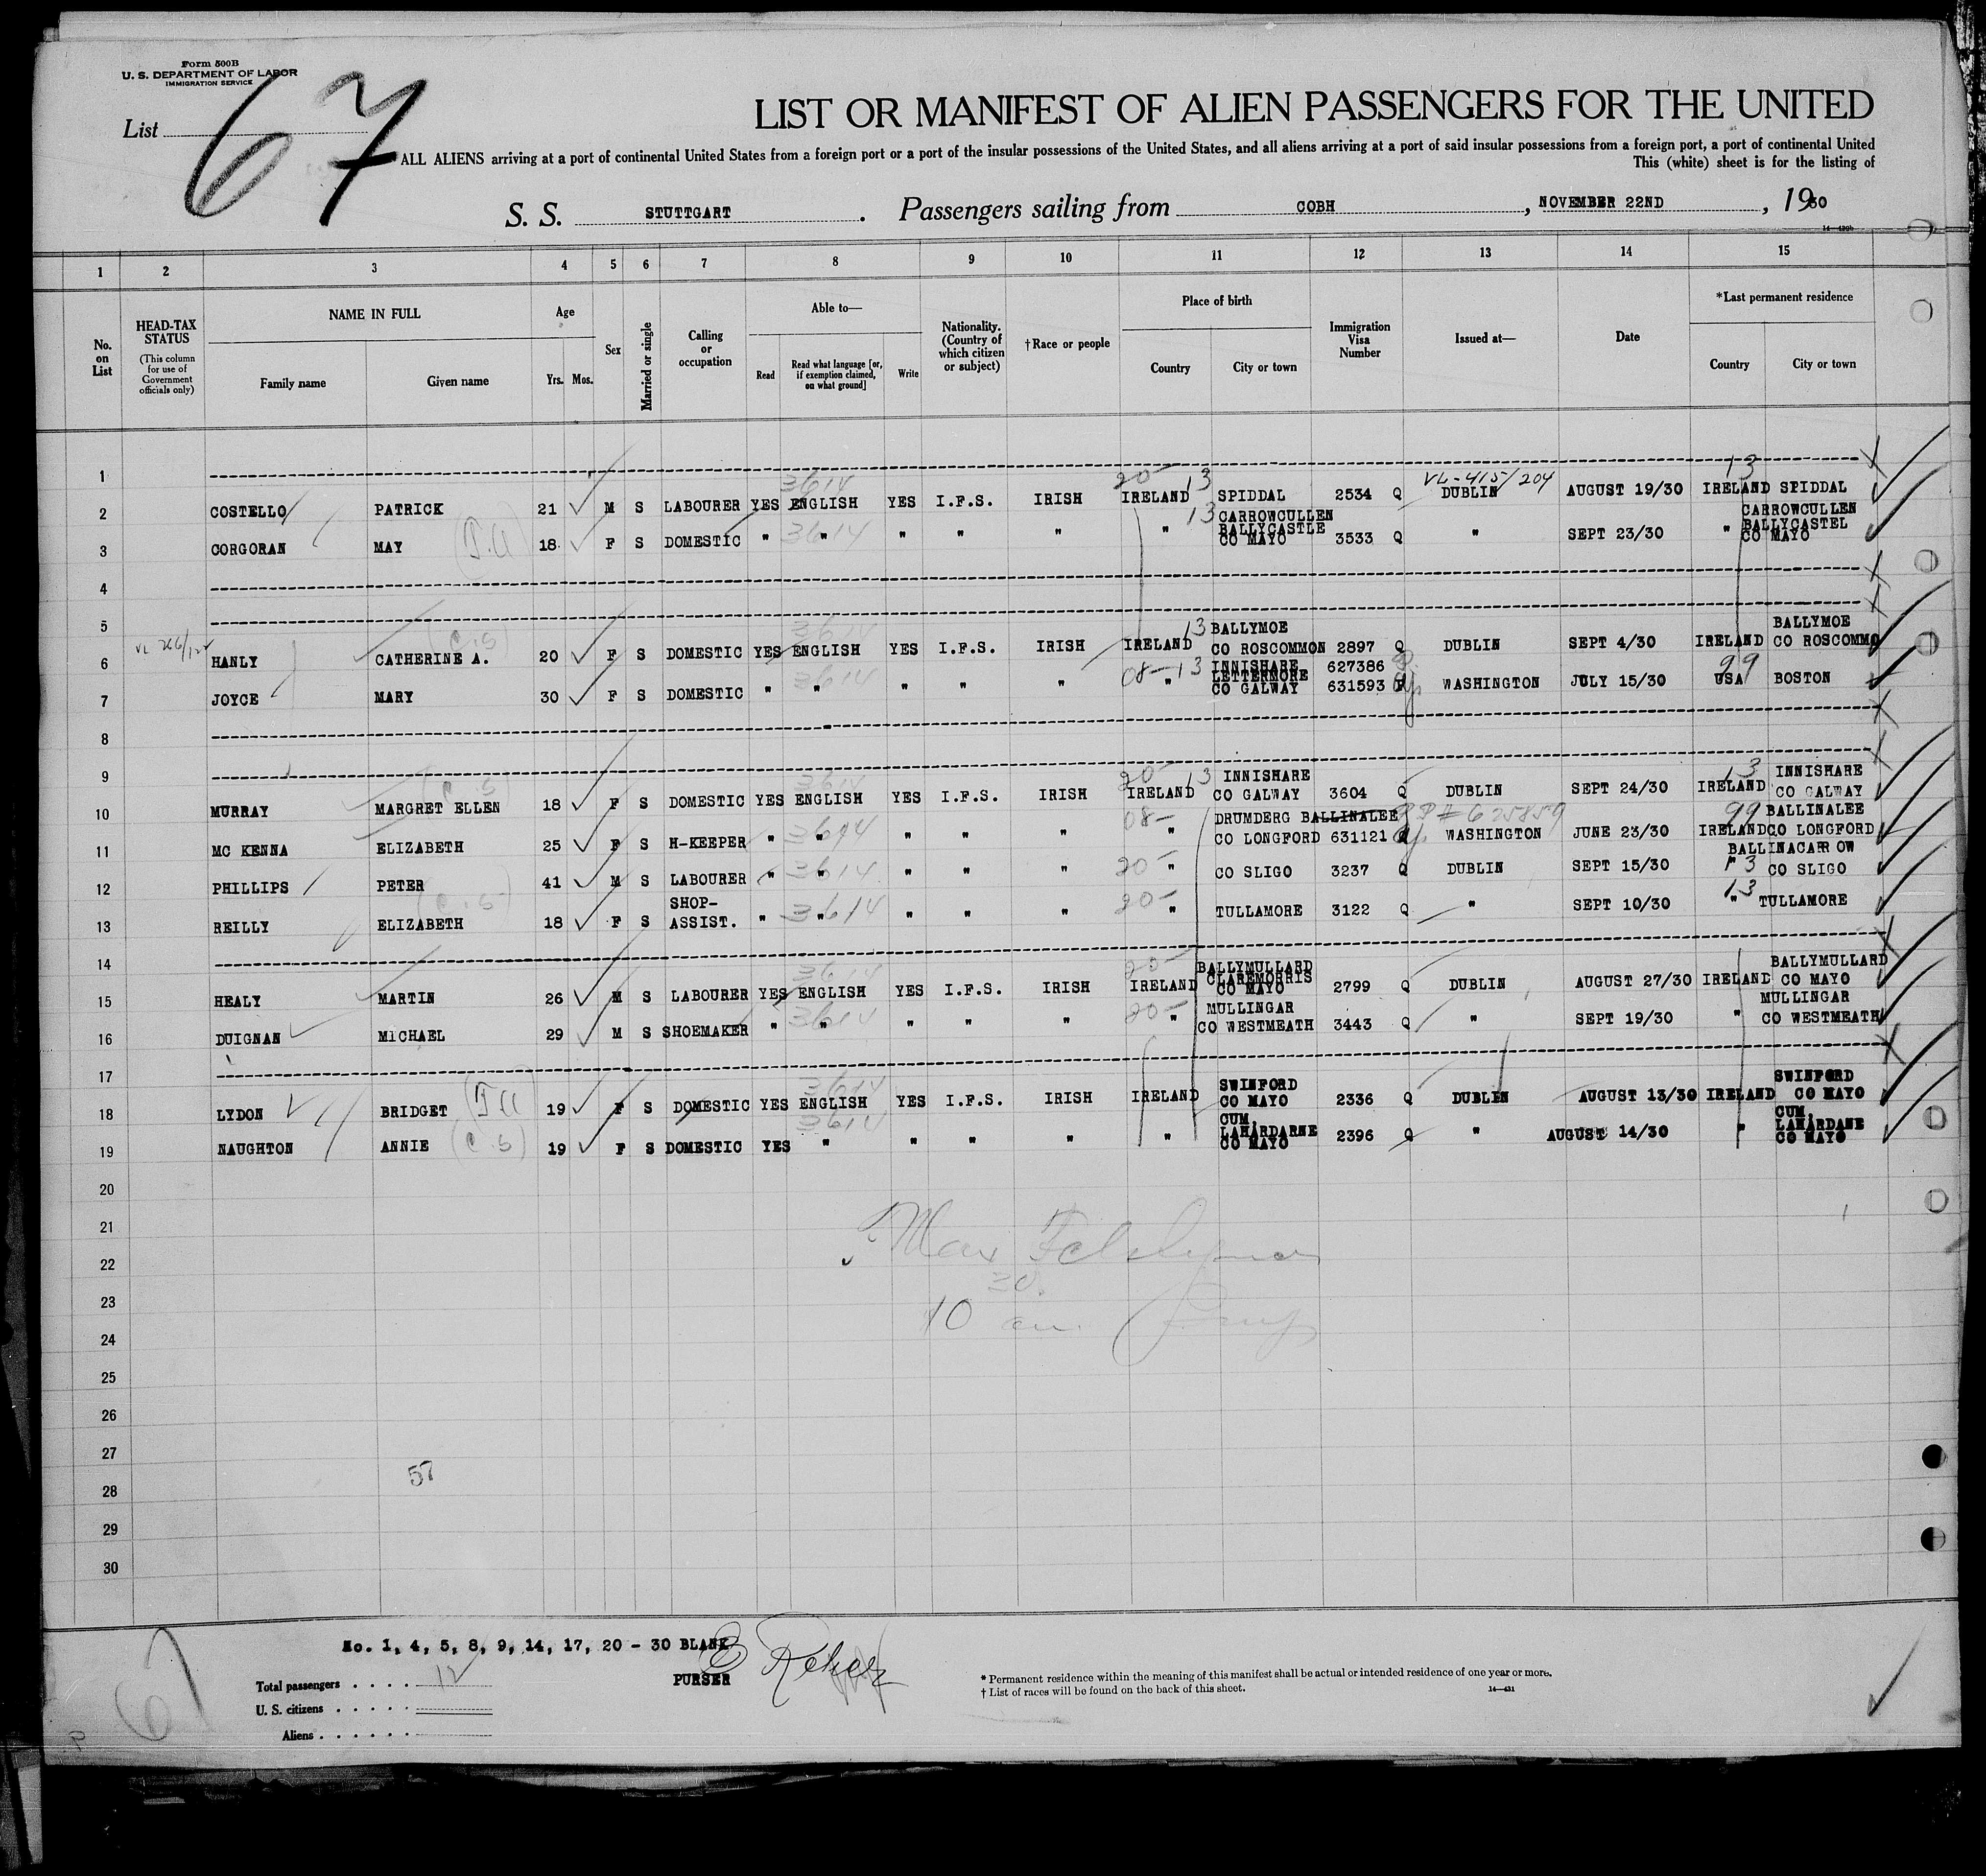 Form 500B
U. S. DEPARTMENT OF LABOR
IMMIGRATION SERVICE
List 67
LIST OR MANIFEST OF ALIEN PASSENGERS FOR THE UNITED
ALL ALIENS arriving at a port of continental United States from a foreign port or a port of the insular possessions of the United States, and all aliens arriving at a port of said insular possessions from a foreign port, a port of continental United
This (white) sheet is for the listing of
S. S. STUTTGART. Passengers sailing from COBH, NOVEMBER 22ND, 1930
14—430b
1 2 3 4 5 6 7 8 9 10 11 12 13 14 15
No. on List
HEAD-TAX STATUS (This column for use of Government officials only)
NAME IN FULL Family name Given name
Age Yrs. Mos.
Sex
Married or single
Calling or occupation
Able to— Read Read what language [or, if exemption claimed, on what ground] Write
Nationality. (Country of which citizen or subject)
†Race or people
Place of birth Country City or town
Immigration Visa Number
Issued at—
Date
*Last permanent residence Country City or town
1
VL-415/204
2 COSTELLO PATRICK 21 M S LABOURER YES 3614 ENGLISH YES I.F.S. IRISH 20- IRELAND 13 SPIDDAL 2534 Q DUBLIN AUGUST 19/30 13 IRELAND SPIDDAL
3 CORGORAN MAY 18 F S DOMESTIC " 3614 " " " " " 13 CARROWCULLEN BALLYCASTLE CO MAYO 3533 Q " SEPT 23/30 " CARROWCULLEN BALLYCASTEL CO MAYO
4
5
6 HANLY CATHERINE A. (C.S) 20 F S DOMESTIC YES 3614 ENGLISH YES I.F.S. IRISH IRELAND 13 BALLYMOE CO ROSCOMMON 2897 Q DUBLIN SEPT 4/30 IRELAND BALLYMOE CO ROSCOMMO
7 JOYCE MARY 30 F S DOMESTIC " 3614 " " " " 08- " 13 INNISHARE LETTERMORE CO GALWAY 627386 631593 WASHINGTON JULY 15/30 99 USA BOSTON
8
9
10 MURRAY MARGRET ELLEN (C.S) 18 F S DOMESTIC YES 3614 ENGLISH YES I.F.S. IRISH 20- IRELAND 13 INNISHARE CO GALWAY 3604 Q DUBLIN SEPT 24/30 13 IRELAND INNISHARE CO GALWAY
11 MC KENNA ELIZABETH 25 F S H-KEEPER " 3614 " " " " 08- " DRUMDERG BALLINALEE CO LONGFORD 631121 # 625859 WASHINGTON JUNE 23/30 99 IRELAND BALLINALEE CO LONGFORD
12 PHILLIPS PETER 41 M S LABOURER " 3614 " " " " 20- " CO SLIGO 3237 Q DUBLIN SEPT 15/30 " 13 BALLINACARROW CO SLIGO
13 REILLY ELIZABETH (C.S) 18 F S SHOP-ASSIST. " 3614 " " " " 20- " TULLAMORE 3122 Q " SEPT 10/30 13 " TULLAMORE
14
15 HEALY MARTIN 26 M S LABOURER YES 3614 ENGLISH YES I.F.S. IRISH 20- IRELAND BALLYMULLARD CLAREMORRIS CO MAYO 2799 Q DUBLIN AUGUST 27/30 IRELAND BALLYMULLARD CO MAYO
16 DUIGNAN MICHAEL 29 M S SHOEMAKER " 3614 " " " " 20- " MULLINGAR CO WESTMEATH 3443 Q " SEPT 19/30 " MULLINGAR CO WESTMEATH
17
18 LYDON BRIDGET 19 F S DOMESTIC YES 3614 ENGLISH YES I.F.S. IRISH IRELAND SWINFORD CO MAYO 2336 Q DUBLIN AUGUST 13/30 IRELAND SWINFORD CO MAYO
19 NAUGHTON ANNIE (C.S) 19 F S DOMESTIC YES 3614 " " " " " CUM, LAHARDARNE CO MAYO 2396 Q " AUGUST 14/30 " CUM, LAHARDANE CO MAYO
20
21
22
23
24
25
26
27
57
28
29
30
No. 1, 4, 5, 8, 9, 14, 17, 20 - 30 BLANK
PURSER
Total passengers . . . . 12
U. S. citizens . . . . .
Aliens . . . . . .
* Permanent residence within the meaning of this manifest shall be actual or intended residence of one year or more.
† List of races will be found on the back of this sheet.
14—431
67